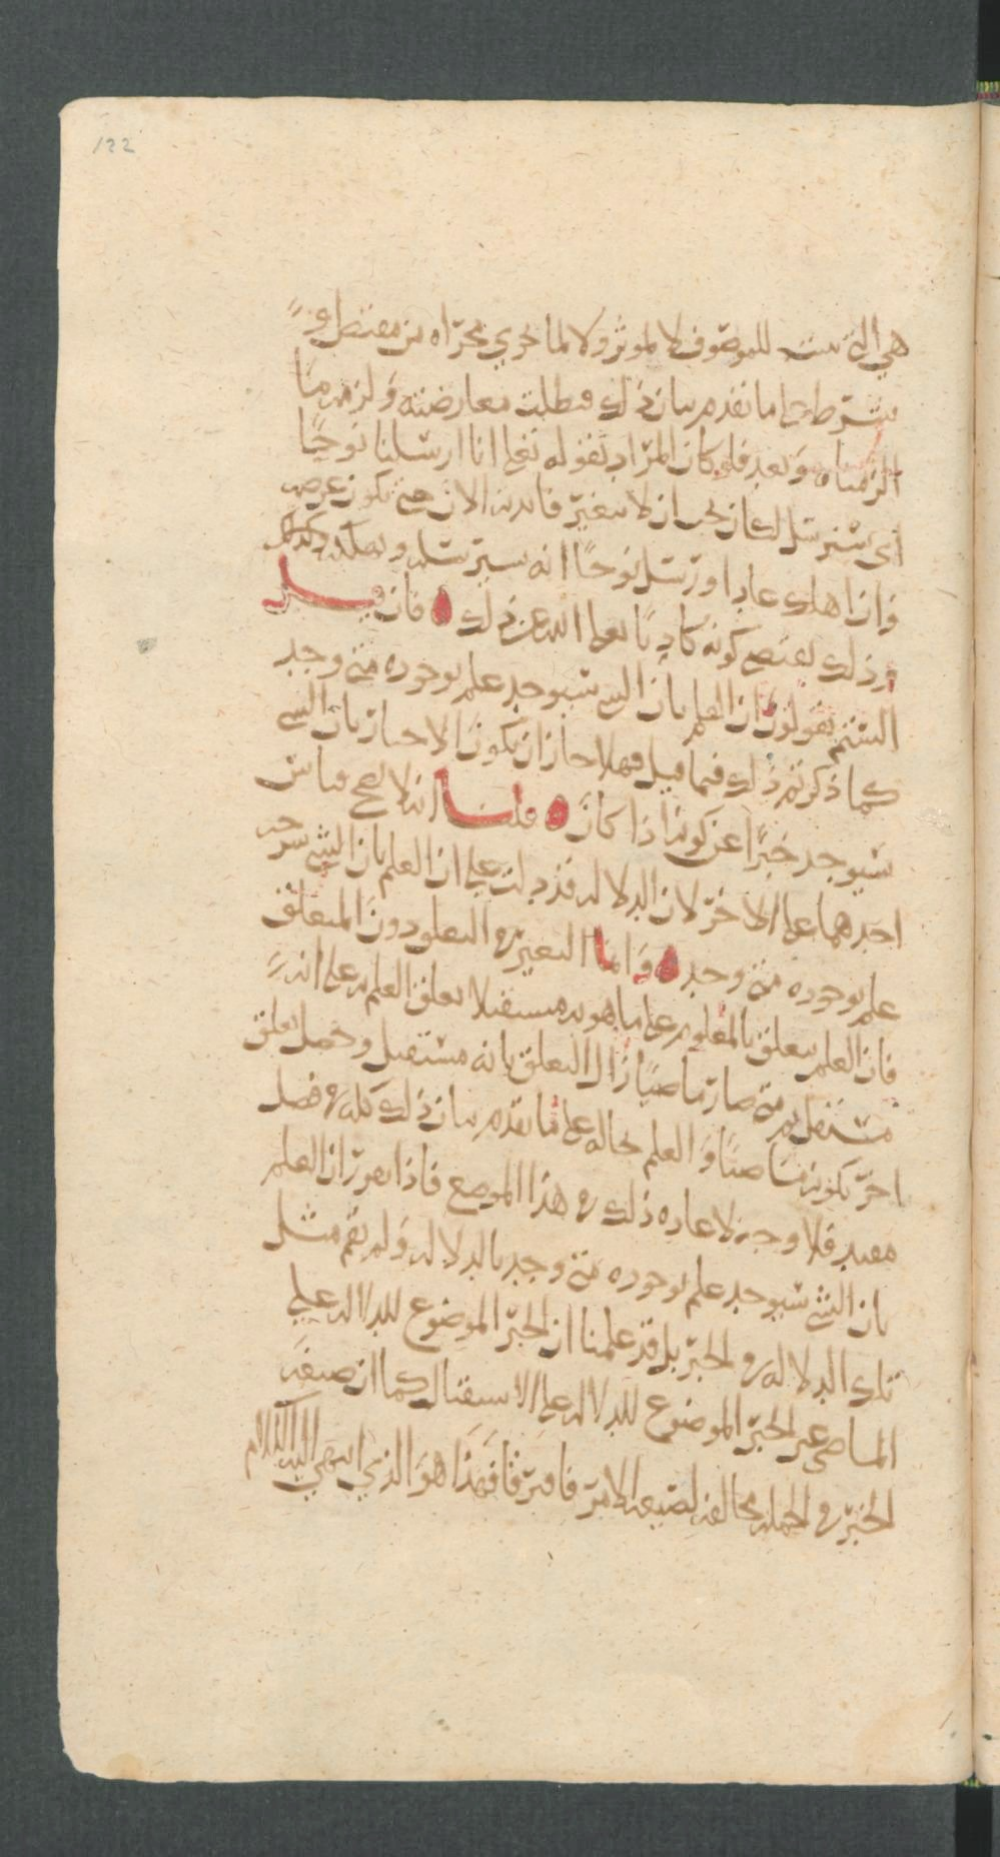 122
هي التي تثبت للموصوف لا لموثر ولا لما يجري مجراه من مقتضى او
شرط على ما تقدم بيان ذلك فبطلت معارضته ولزمه ما
الزمناه وبعد فلو كان المراد بقوله تعلى انا ارسلنا نوحا
اي سنرسل لكان يجب ان لا يتغير فايدته الان حتى يكون غرضه
وان اهلك عادا ورسل نوحا انه سيرسله
وذلك يقتضي كونه كاذبا تعلى الله عن ذلك فان قيل
الستم تقولون ان العلم بان الشي سيوجد علم بوجوده متى وجد
كما ذكرتم ذلك فيما قبل فهلا جاز ان يكون الاخبار بان الشي
سيوجد خبرا عن كونه اذا كان قلنا انه لا يصح قياس
احدهما على الاخر لان الدلاله قد دلت على ان العلم بان الشي سيوجد
علم بوجوده متى وجد وانما التغير في المعلوم دون المتعلق
فان العلم يتعلق بالمعلوم على ما هو به مستقبلا تعلق العلم به على انه
مستقبل ثم متى صار ماضيا زال التعلق بانه مستقبل وحصل تعلق
اخر بكونه ماضيا والعلم بحاله على ما تقدم بيان ذلك كله في فصل
مفرد فلا وجه لاعاده ذلك في هذا الموضع فاذا تقرر ان العلم
بان الشي سيوجد علم بوجوده متى وجد بالدلاله ولم يقم مثل
تلك الدلاله في الخبر بل قد علمنا ان الخبر الموضوع للدلاله على
الماضي غير الخبر الموضوع للدلاله على الاستقبال كما ان صيغه
الخبر في الجمله مخالفه لصيغه الامر فافترقا فهذا هو الذي انتهى اليه الكلام